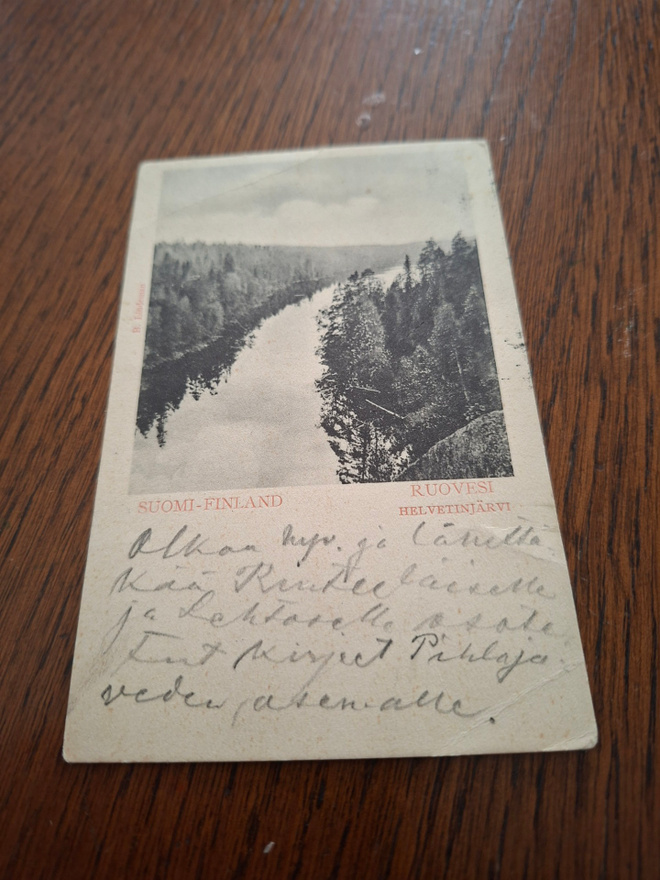 SUOMI-FINLAND
RUOVESI
HELVETINJÄRVI
Olkaa hyv. ja lähettä-
kää
ja Lehtoselle osote-
tut kirjeet Pihlaja-
veden, asemalle.